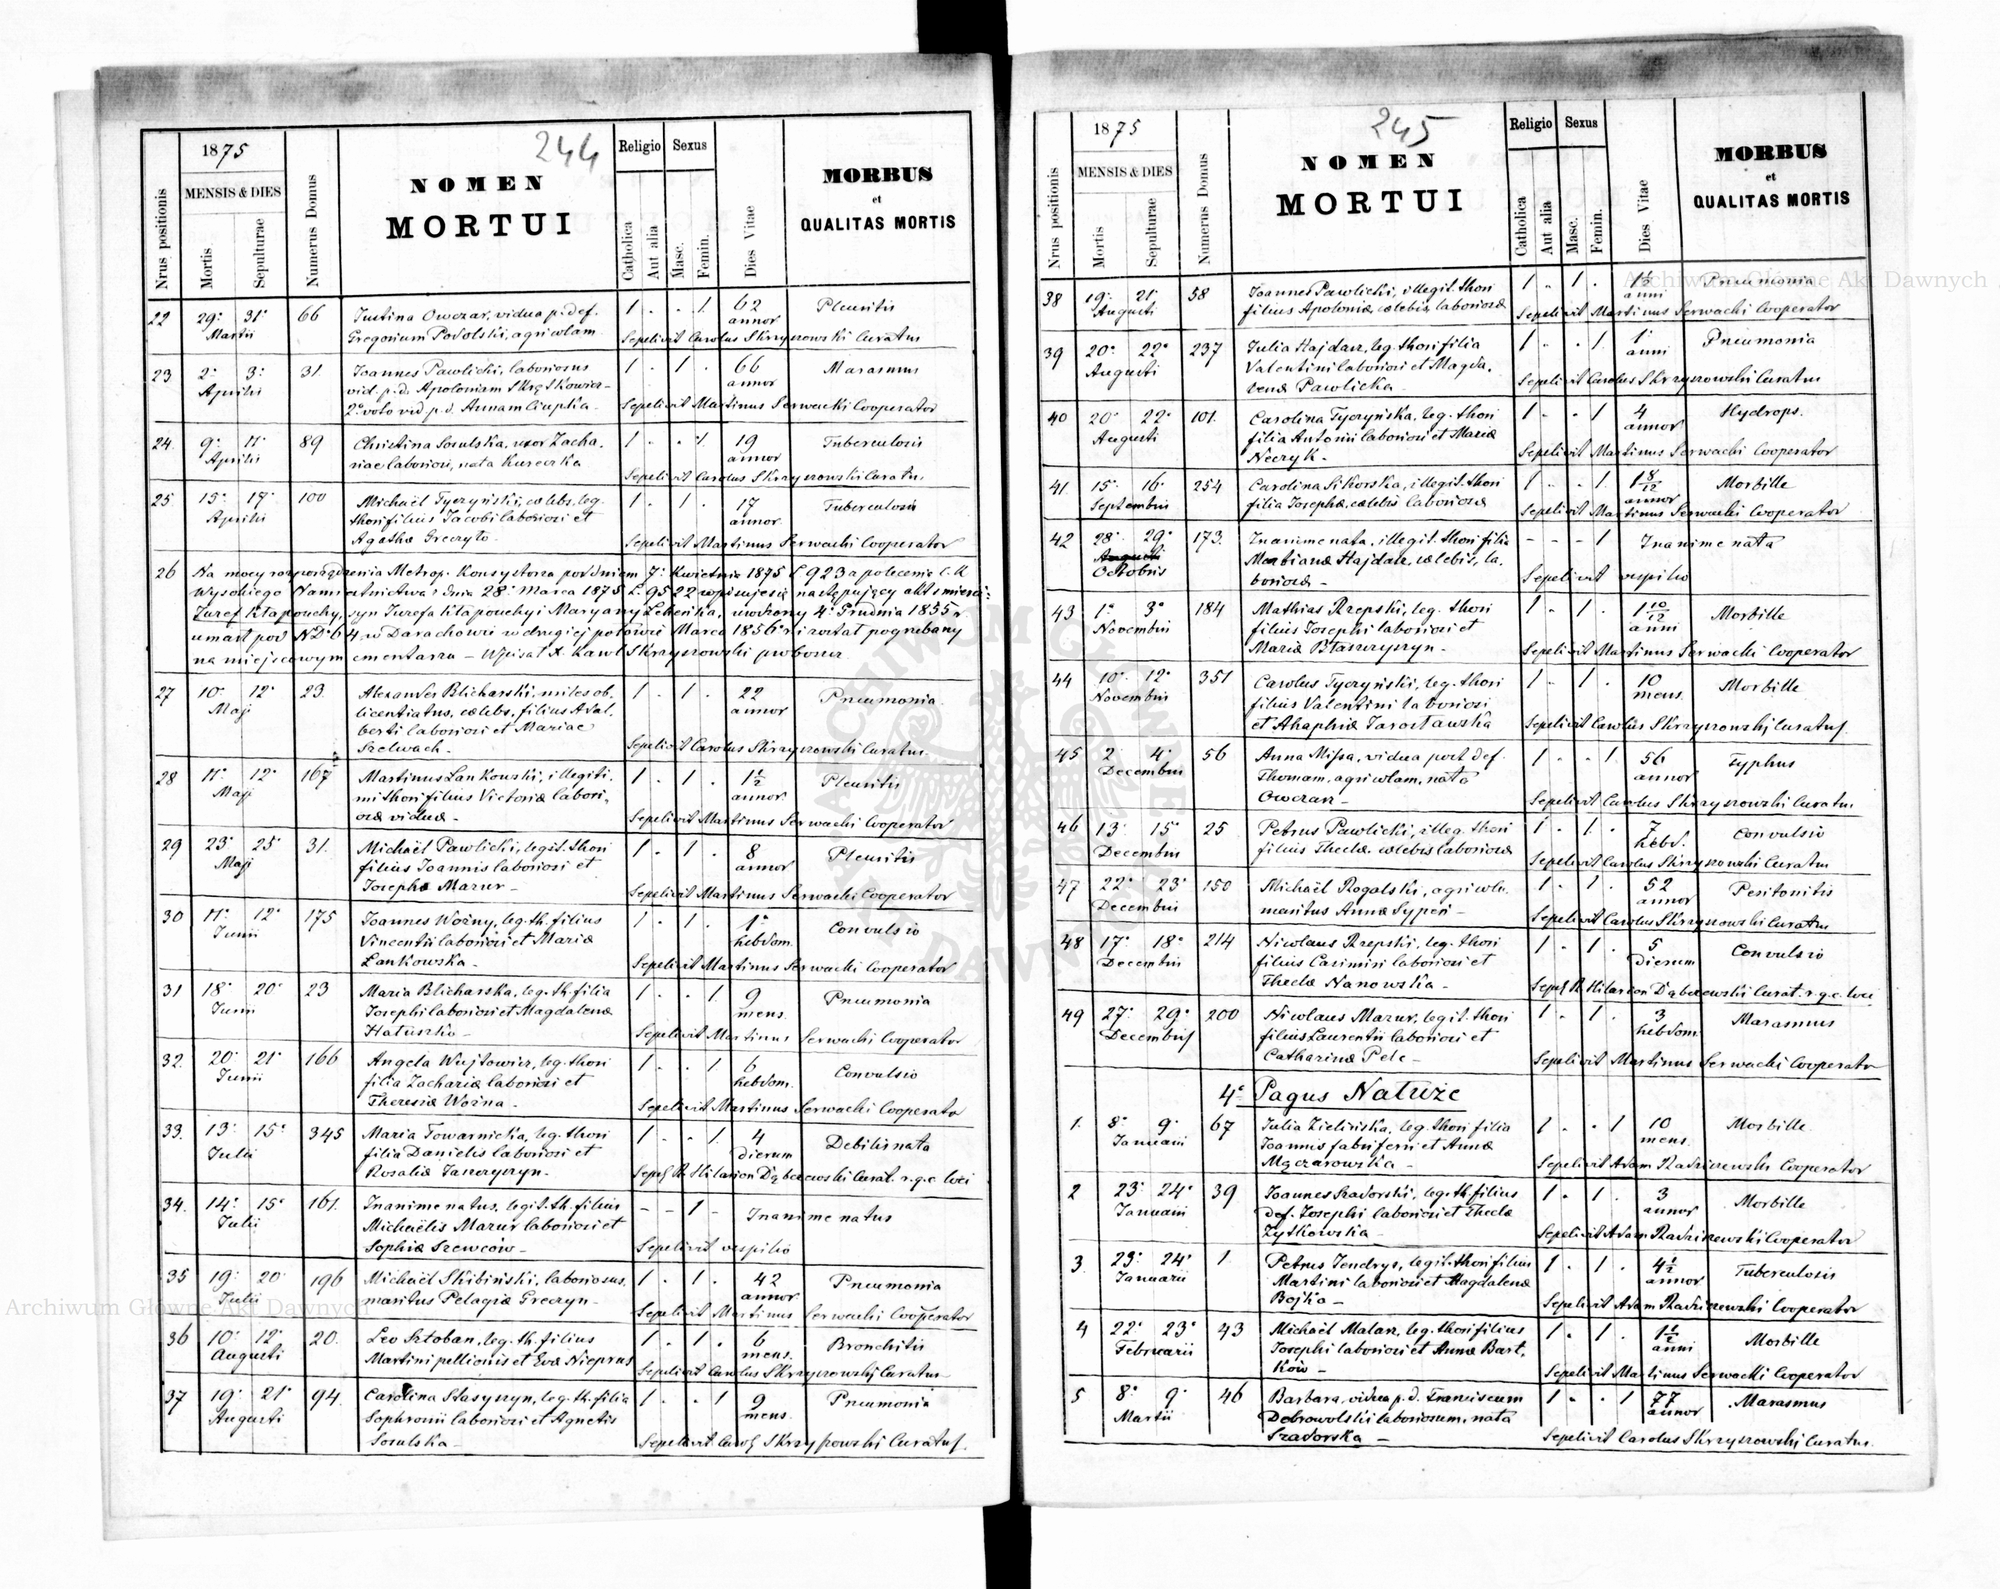 244
1875
Nrus positionis
MENSIS & DIES
Mortis
Sepulturae
Numerus Domus
NOMEN
MORTUI
Religio
Sexus
Catholica
Aut alia
Masc.
Femin.
Dies Vitae
MORBUS
et
QUALITAS MORTIS
22 29. 31. 66 Justina Owczar, vidua p. def. 1 . . 1. 62 Pleuritis
Martii Gregorium Podolski, agricolam annor
Sepelivit Carolus Skrzyszowski Curatus
23 2. 3. 31. Joannes Pawlicki, laboriosus 1 . 1 . 66 Marasmus
Aprilis vid. p. d. Apoloniam annor
2º voto vid p. d. Annam Ciupka - Sepelivit Martinus Serwacki Cooperator
24. 9. 11. 89 Christina Sosulska, uxor Zacha- 1 . . 1. 19 Tuberculosis
Aprilis riae laboriosi, nata annor
Sepelivit Carolus Skrzyszowski Curatus
25 15. 17. 100 Michaël Tyczyński, cælebs, leg. 1 . 1 . 17 Tuberculosis
Aprilis thori filius Jacobi laboriosi et annor
Agathæ - Sepelivit Martinus Serwacki Cooperator
26 Na mocy rozporządzenia Metrop. Konsystorza pod dniem 7. Kwietnia 1875 L 923 a polecenia C. K
Wysokiego Namiestnictwa z dnia 28. Marca 1875 L. 9522 wpisuje się następujący akt śmierci:
Józef Kłapouchy, syn Józefa Kłapouchy i Maryanny urodzony 4. Grudnia 1855 r.
umarł pod ND. 64 w Darachowie w drugiej połowie Marca 1856 r i został pogrzebany
na miejscowym cmentarzu - Wpisał X. Karol Skrzyszowski proboszcz
27 10. 12. 23. Alexander Blicharski, miles ob- 1 . 1 . 22 Pneumonia
Maji licentiatus, cælebs, filius Adal- annor
berti laboriosi et Mariae
Szelwach - Sepelivit Carolus Skrzyszowski Curatus
28 11. 12. 167 Martinus Lankowski, illegiti- 1 . 1 . 1½ Pleuritis
Maji mi thori filius Victoriæ labori- annor
osæ viduæ - Sepelivit Martinus Serwacki Cooperator
29 23. 25. 31. Michaël Pawlicki, legit. thori 1 . 1 . 8 Pleuritis
Maji filius Joannis laboriosi et annor
Josephæ Mazur - Sepelivit Martinus Serwacki Cooperator
30 11. 12. 175 Joannes Woźny, leg. th. filius 1 . 1 . 1. Convulsio
Junii Vincentii laboriosi et Mariæ hebdom.
Lankowska - Sepelivit Martinus Serwacki Cooperator
31 18. 20. 23 Maria Blicharska, leg. th. filia 1 . . 1. 9 Pneumonia
Junii Josephi laboriosi et Magdalenæ mens.
Hałuszka - Sepelivit Martinus Serwacki Cooperator
32. 20. 21. 166 Angela Wujtowicz, leg. thori 1 . . 1 6 Convulsio
Junii filia Zachariæ laboriosi et hebdom.
Theresiæ Woźna - Sepelivit Martinus Serwacki Cooperator
33. 13. 15. 345 Maria Towarnicka, leg. thori 1 . . 1. 4 Debilis nata
Julii filia Danielis laboriosi et dierum
Rosaliæ Jaszczyszyn - Hilarion Dąbczewski Curat. r. g. c. loci
34. 14. 15. 161. Inanime natus, legit. th. filius - - 1 - Inanime natus
Julii Michaëlis Mazur laboriosi et
Sophiæ Szewców - Sepelivit vespilio
35 19. 20. 196 Michaël Skibiński, laboriosus, 1 . 1 . 42 Pneumonia
Julii maritus Pelagiæ Greczyn - annor
Sepelivit Martinus Serwacki Cooperator
36 10. 12. 20. Leo Sztoban, leg. th. filius 1 . 1 . 6 Bronchitis
Augusti Martini pellionis et Evæ Nieprus mens.
Sepelivit Carolus Skrzyszowski Curatus
37 19. 21. 94. Carolina Stasyszyn, leg. th. filia 1 . . 1 9 Pneumonia
Augusti Sophronii laboriosi et Agnetis mens.
Sosulska - Sepelivit Carol Skrzyszowski Curatus
245
1875
Nrus positionis
MENSIS & DIES
Mortis
Sepulturae
Numerus Domus
NOMEN
MORTUI
Religio
Sexus
Catholica
Aut alia
Masc.
Femin.
Dies Vitae
MORBUS
et
QUALITAS MORTIS
38 19. 21. 58 Joannes Pawlicki, illegit. thori 1 . 1 . 1½ Pneumonia
Augusti filius Apoloniæ cælebis laboriosæ anni
Sepelivit Martinus Serwacki Cooperator
39 20. 22. 237 Julia Hajdasz, leg. thori filia 1 . . 1. 1 Pneumonia
Augusti Valentini laboriosi et Magda- anni
lenæ Pawlicka - Sepelivit Carolus Skrzyszowski Curatus
40 20. 22. 101. Carolina Tyczyńska, leg. thori 1 . . 1 4 Hydrops.
Augusti filia Antonii laboriosi et Mariæ annor
Neczyk - Sepelivit Martinus Serwacki Cooperator
41. 15. 16. 254 Carolina Sikorska, illegit. thori 1 . . 1. 1 8/12 Morbille
Septembris filia Josephæ, cælebis laboriosæ annor
Sepelivit Martinus Serwacki Cooperator
42 28. 29. 173. Inanime nata, illegit. thori filia - - - 1 Inanime nata
Augusti Marianæ Hajdasz, cælebis, la-
Octobris boriosæ - Sepelivit vespilio
43 1. 3. 184 Mathias Rzepski, leg. thori 1 . 1 . 1 10/12 Morbille
Novembris filius Josephi laboriosi et anni
Mariæ Błaszczyszyn - Sepelivit Martinus Serwacki Cooperator
44 10. 12. 351 Carolus Tyczyński, leg. thori 1 . 1 . 10 Morbille
Novembris filius Valentini laboriosi mens.
et Ahaphiæ Jarosławska Sepelivit Carolus Skrzyszowski Curatus
45 2 4. 56 Anna Missa, vidua post def. 1 . . 1 56 Typhus
Decembris Thomam, agricolam, nata annor
Owczar - Sepelivit Carolus Skrzyszowski Curatus
46 13. 15. 25 Petrus Pawlicki, illeg. thori 1 . 1 . 7 Convulsio
Decembris filius Theclæ cælebis laboriosæ hebd.
Sepelivit Carolus Skrzyszowski Curatus
47 22. 23. 150 Michaël Rogalski, agricola 1 . 1 . 52 Peritonitis
Decembris maritus Annæ Sypeń - annor
Sepelivit Carolus Skrzyszowski Curatus
48 17. 18. 214 Nicolaus Rzepski, leg. thori 1 . 1 . 5 Convulsio
Decembris filius Casimiri laboriosi et dierum
Theclæ Nanowska - Hilarion Dąbczewski Curat. r. g. c. loci
49 27. 29. 200 Nicolaus Mazur, legit. thori 1 . 1 . 3 Marasmus
Decembris filius Laurentii laboriosi et hebdom
Catharinæ Pelc - Sepelivit Martinus Serwacki Cooperator
4. Pagus Nałuże
1. 8. 9. 67 Julia Zielińska, leg. thori filia 1 . . 1 10 Morbille
Januarii Joannis fabri ferri et Annæ mens.
Mączarowska - Sepelivit Adam Radziszewski Cooperator
2 23. 24. 39 Joannes Szadorski, leg. th. filius 1 . 1 . 3 Morbille
Januarii def. Josephi laboriosi et Theclæ annor
Żytkowska - Sepelivit Adam Radziszewski Cooperator
3. 23. 24. 1 Petrus Jendrys, legit. thori filius 1 . 1 . 4½ Tuberculosis
Januarii Martini laboriosi et Magdalenæ annor
Bojko - Sepelivit Adam Radziszewski Cooperator
4 22. 23. 43 Michaël Malarz, leg. thori filius 1 . 1 . 1½ Morbille
Februarii Josephi laboriosi et Annæ Bart- anni
ków - Sepelivit Martinus Serwacki Cooperator
5 8. 9. 46 Barbara, vidua p. d. Franciscum 1 . . 1 77 Marasmus
Martii Dobrowolski laboriosum, nata annor
Szadorska - Sepelivit Carolus Skrzyszowski Curatus
Archiwum Główne Akt Dawnych
Archiwum Główne Akt Dawnych
ARCHIWUM GŁÓWNE AKT DAWNYCH